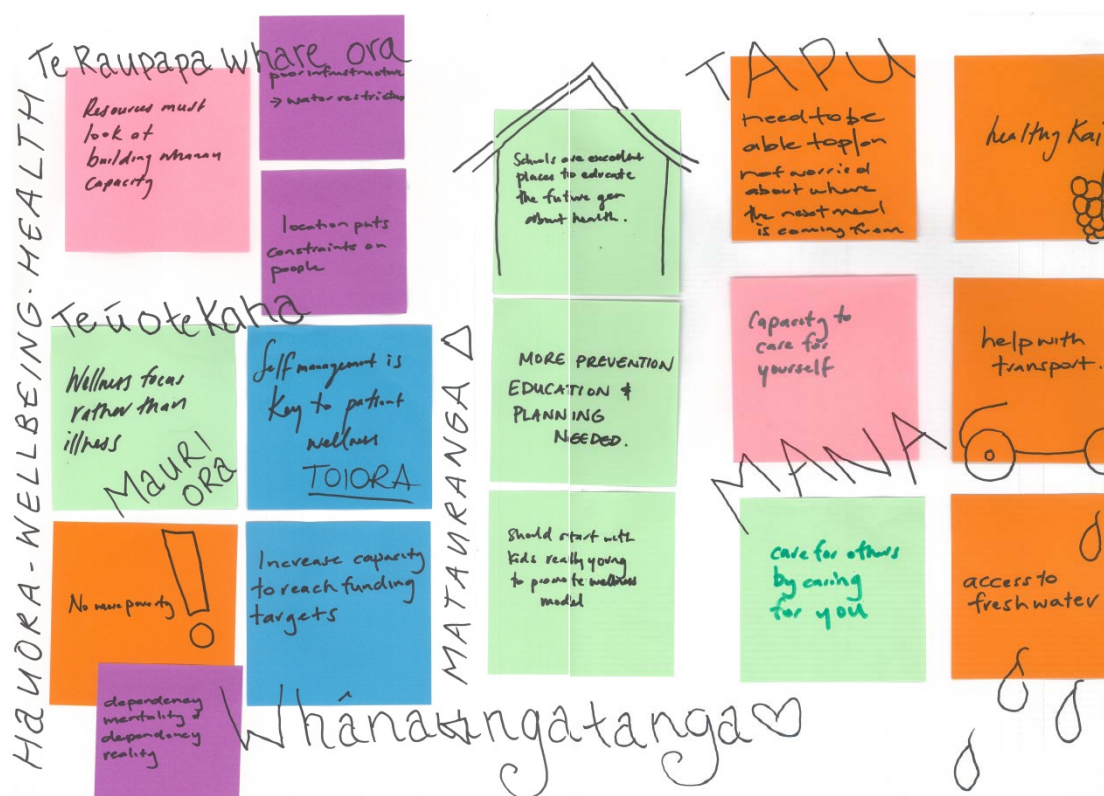 Te Raupapa whare ora
HAUORA-WELLBEING-HEALTH
Resources must
look at
building whanau
capacity
poor infrastructure
→ water restriction
location puts
constraints on
people
Te ū o te Kaha
Wellness focus
rather than
illness
MAURI
ORA
Self management is
key to patient
wellness
TOIORA
No more poverty!
Increase capacity
to reach funding
targets
dependency
mentality &
dependency
reality
MATAURANGA
Schools are excellent
places to educate
the future gen
about health.
MORE PREVENTION
EDUCATION &
PLANNING
NEEDED.
Should start with
kids really young
to promote wellness
model
Whânaungatanga
TAPU
need to be
able to plan
not worried
about where
the next meal
is coming from
healthy Kai
Capacity to
care for
yourself
help with
transport.
MANA
care for others
by caring
for you
access to
fresh water